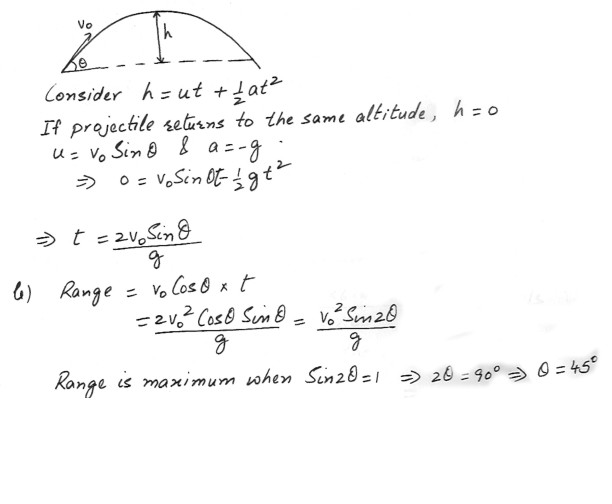 v₀
h
θ
Consider h = ut + ½at²
If projectile returns to the same altitude, h = 0
u = v₀ Sinθ & a = -g
⇒ 0 = v₀Sinθt - ½gt²
⇒ t = 2v₀Sinθ/g
b) Range = v₀ Cosθ × t
= 2v₀² Cosθ Sinθ/g = v₀² Sin2θ/g
Range is maximum when Sin2θ = 1 ⇒ 2θ = 90° ⇒ θ = 45°